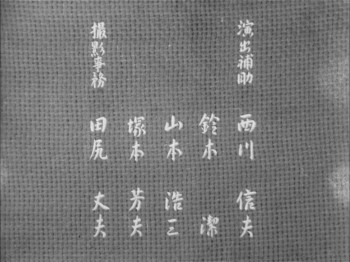 演出補助
西川 信夫
鈴木 潔
山本 浩三
塚本 芳夫
撮影事務
田尻 丈夫